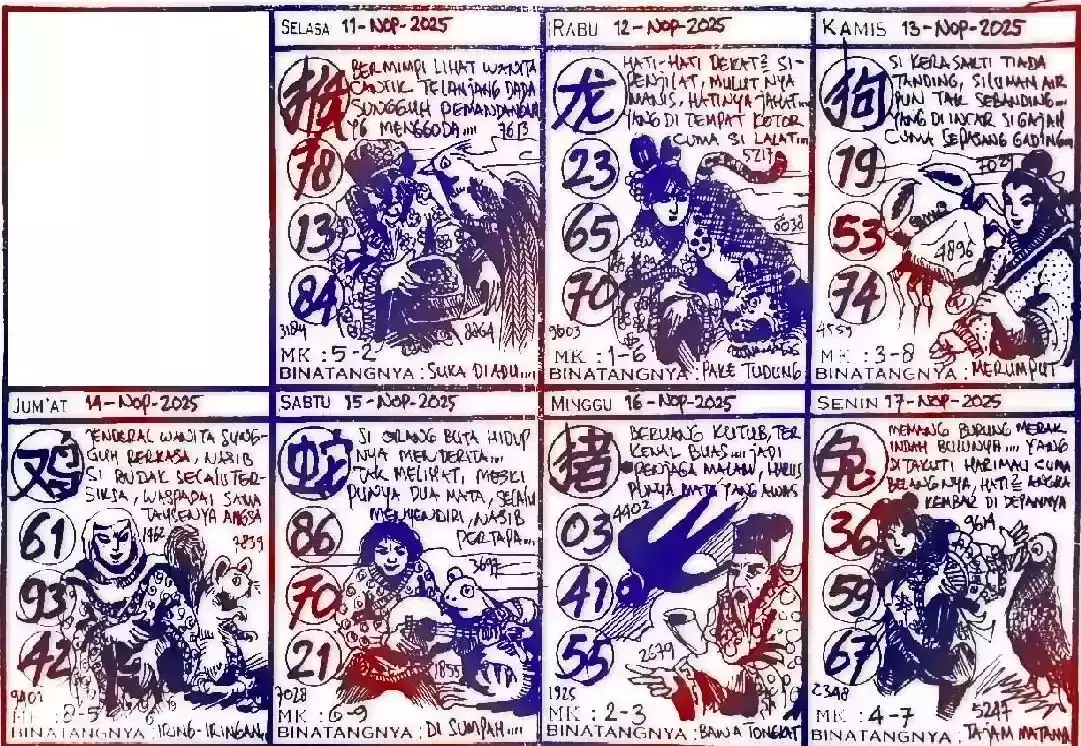 SELASA 11-NOP-2025
猴
BERMIMPI LIHAT WANITA
CANTIK TELANJANG DADA
SUNGGUH PEMANDANGAN
YG MENGGODA....
7613
78
13
84
3184
8864
MK : 5-2
BINATANGNYA : SUKA DIADU....
RABU 12-NOP-2025
龙
HATI-HATI DEKAT2 SI-
PENJILAT, MULUTNYA
MANIS, HATINYA JAHAT...
YANG DI TEMPAT KOTOR
CUMA SI LALAT...
5213
23
65
6038
70
9603
MK : 1-6
BINATANGNYA : PAKE TUDUNG
KAMIS 13-NOP-2025
狗
SI KERA SAKTI TIADA
TANDING, SILUMAN AIR
PUN TAK SEBANDING...
YANG DI INCAR SI GAJAH
CUMA SEPASANG GADING...
7029
19
53
4896
74
4559
MK : 3-8
BINATANGNYA : MERUMPUT
JUM'AT 14-NOP-2025
鸡
JENDERAL WANITA SUNG-
GUH PERKASA, NASIB
SI BUDAK SECALU TER-
SIKSA, WASPADAI SAMA
ANGSA
1462
7839
61
93
42
9401
MK : 0-5
BINATANGNYA : IRING-IRINGAN
SABTU 15-NOP-2025
蛇
SI ORANG BUTA HIDUP
NYA MENDERITA...
TAK MELIHAT, MESKI
PUNYA DUA MATA, SELALU
MENYENDIRI, NASIB
PERTAPA...
3697
86
70
21
1855
7028
MK : 6-9
BINATANGNYA : DI SUMPAH....
MINGGU 16-NOP-2025
猪
BERUANG KUTUB, TER
KENAL BUAS.... JADI
PENJAGA MALAM, HARUS
PUNYA MATA YANG AWAS
4402
03
41
55
2679
1925
MK : 2-3
BINATANGNYA : BAWA TONGKAT
SENIN 17-NOP-2025
兔
MEMANG BURUNG MERAK
INDAH BULUNYA.... YANG
DITAKUTI HARIMAU CUMA
BELANGNYA, HATI2 ANGKA
KEMBAR DI DEPANNYA
9614
36
59
67
2348
5247
MK : 4-7
BINATANGNYA : TAJAM MATANYA